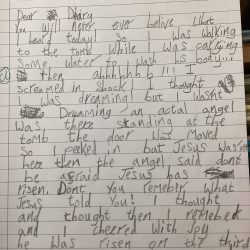 Dear Diary
You will never ever belive what
I hear today! So I was walking
to the tomb while I was carrying
Some water to wash his body!!!
then ahhhhhhh!!! I
Screamed in shock! I thought
I was dreaming but I wasnt
Dreaming an actal angel
was there standing at the
tomb the door was moved
So I peeked in but Jesus wasnt
here then the angel said dont
be afraid Jesus has
risen. Dont you remeber what
Jesus told you! I thought
and thought then I remebered
and I cheered with Joy
he was risen on the third